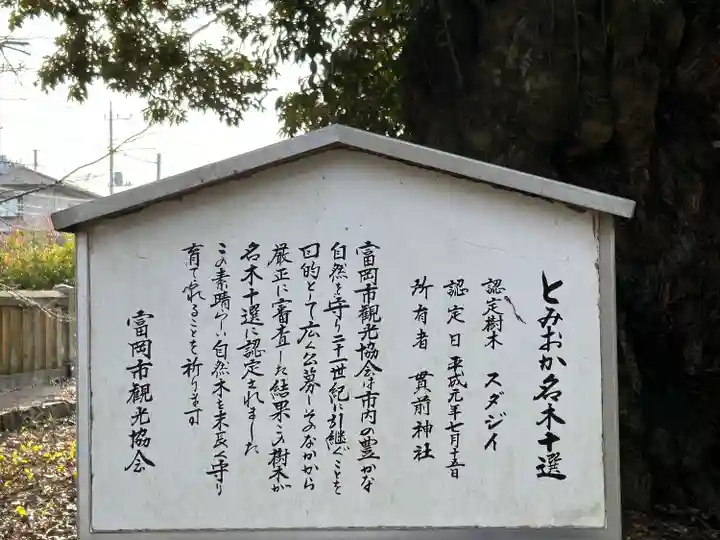 とみおか名木十選
認定樹木 スダジイ
認定日 平成元年七月十五日
所有者 貫前神社
富岡市観光協会は市内の豊かな
自然を守り二十一世紀に引継ぐことを
目的として広く公募しそのなかから
厳正に審査した結果この樹木が
名木十選に認定されました
この素晴らしい自然木を末長く守り
育てられることを祈ります
富岡市観光協会